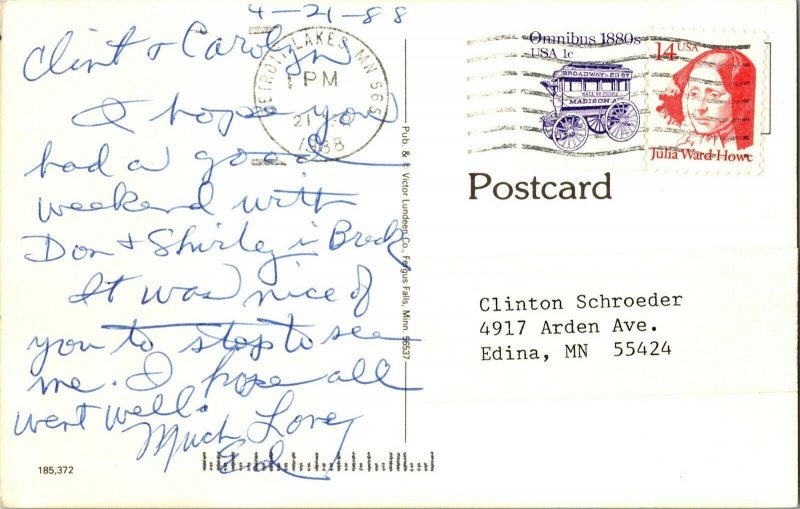 4-21-88
Clint & Carolyn
I hope you
had a good
weekend with
Don & Shirley in Breck.
It was nice of
you to stop to see
me. I hope all
went well.
Much Love,
Ed
185,372
DETROIT LAKES, MN 565
PM
21
1988
Pub. & Victor Lundeen Co., Fergus Falls, Minn. 56537
Omnibus 1880s
USA 1c
BROADWAY & 23 ST.
WALL ST. FERRY
MADISON A
14 USA
Julia Ward Howe
Postcard
Clinton Schroeder
4917 Arden Ave.
Edina, MN 55424